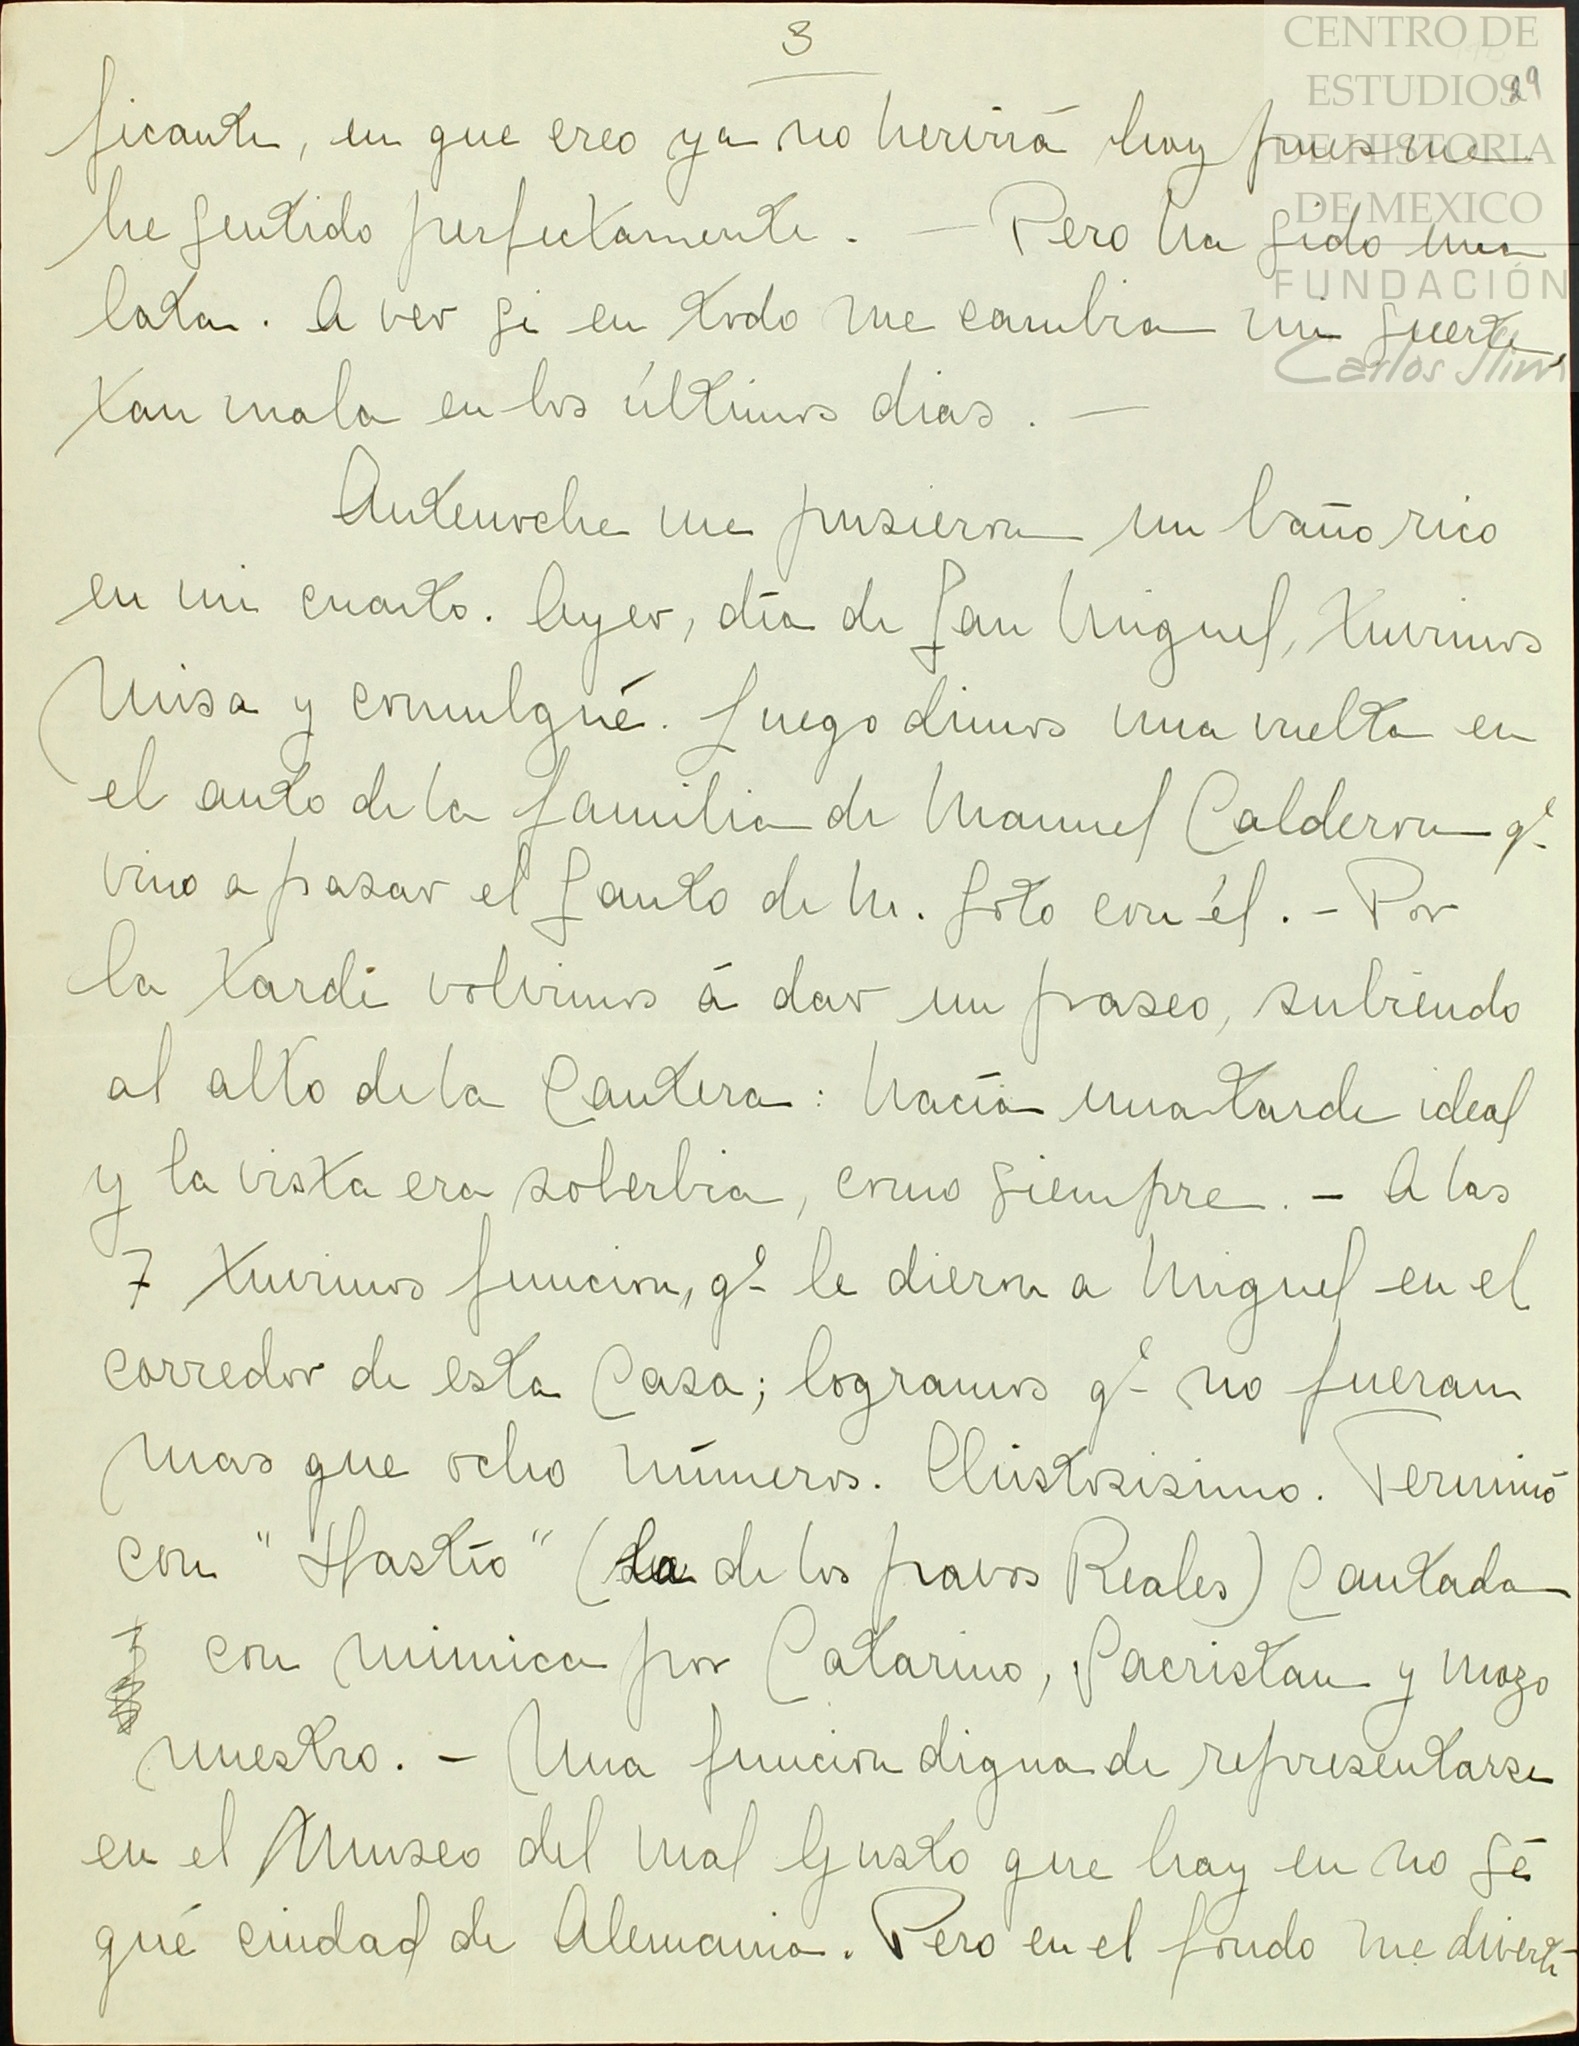 3
29
ficante, en que creo ya no hervirá hoy pues me
he sentido perfectamente. — Pero ha sido una
lata. A ver si en todo me cambia mi suerte,
tan mala en los últimos dias. —
Antenoche me pusieron un baño rico
en mi cuarto. Ayer, día de San Miguel, tuvimos
Misa y comulgué. Luego dimos una vuelta en
el auto de la familia de Manuel Calderon qe
vino a pasar el Santo de M. Soto con él. — Por
la tarde volvimos á dar un paseo, subiendo
al alto de la Cantera: hacía una tarde ideal
y la vista era soberbia, como siempre. — A las
7 tuvimos funcion, qe le dieron a Miguel en el
corredor de esta Casa; logramos qe no fueran
mas que ocho números. Chistosisimo. Terminó
con "Hastío" (la de los pavos Reales) Cantada
con mimica por Catarino, Sacristan y mozo
nuestro. — Una funcion digna de representarse
en el Museo del mal Gusto que hay en no sé
qué ciudad de Alemania. Pero en el fondo me diverti
CENTRO DE
ESTUDIOS
DE HISTORIA
DE MEXICO
FUNDACIÓN
Carlos Slim